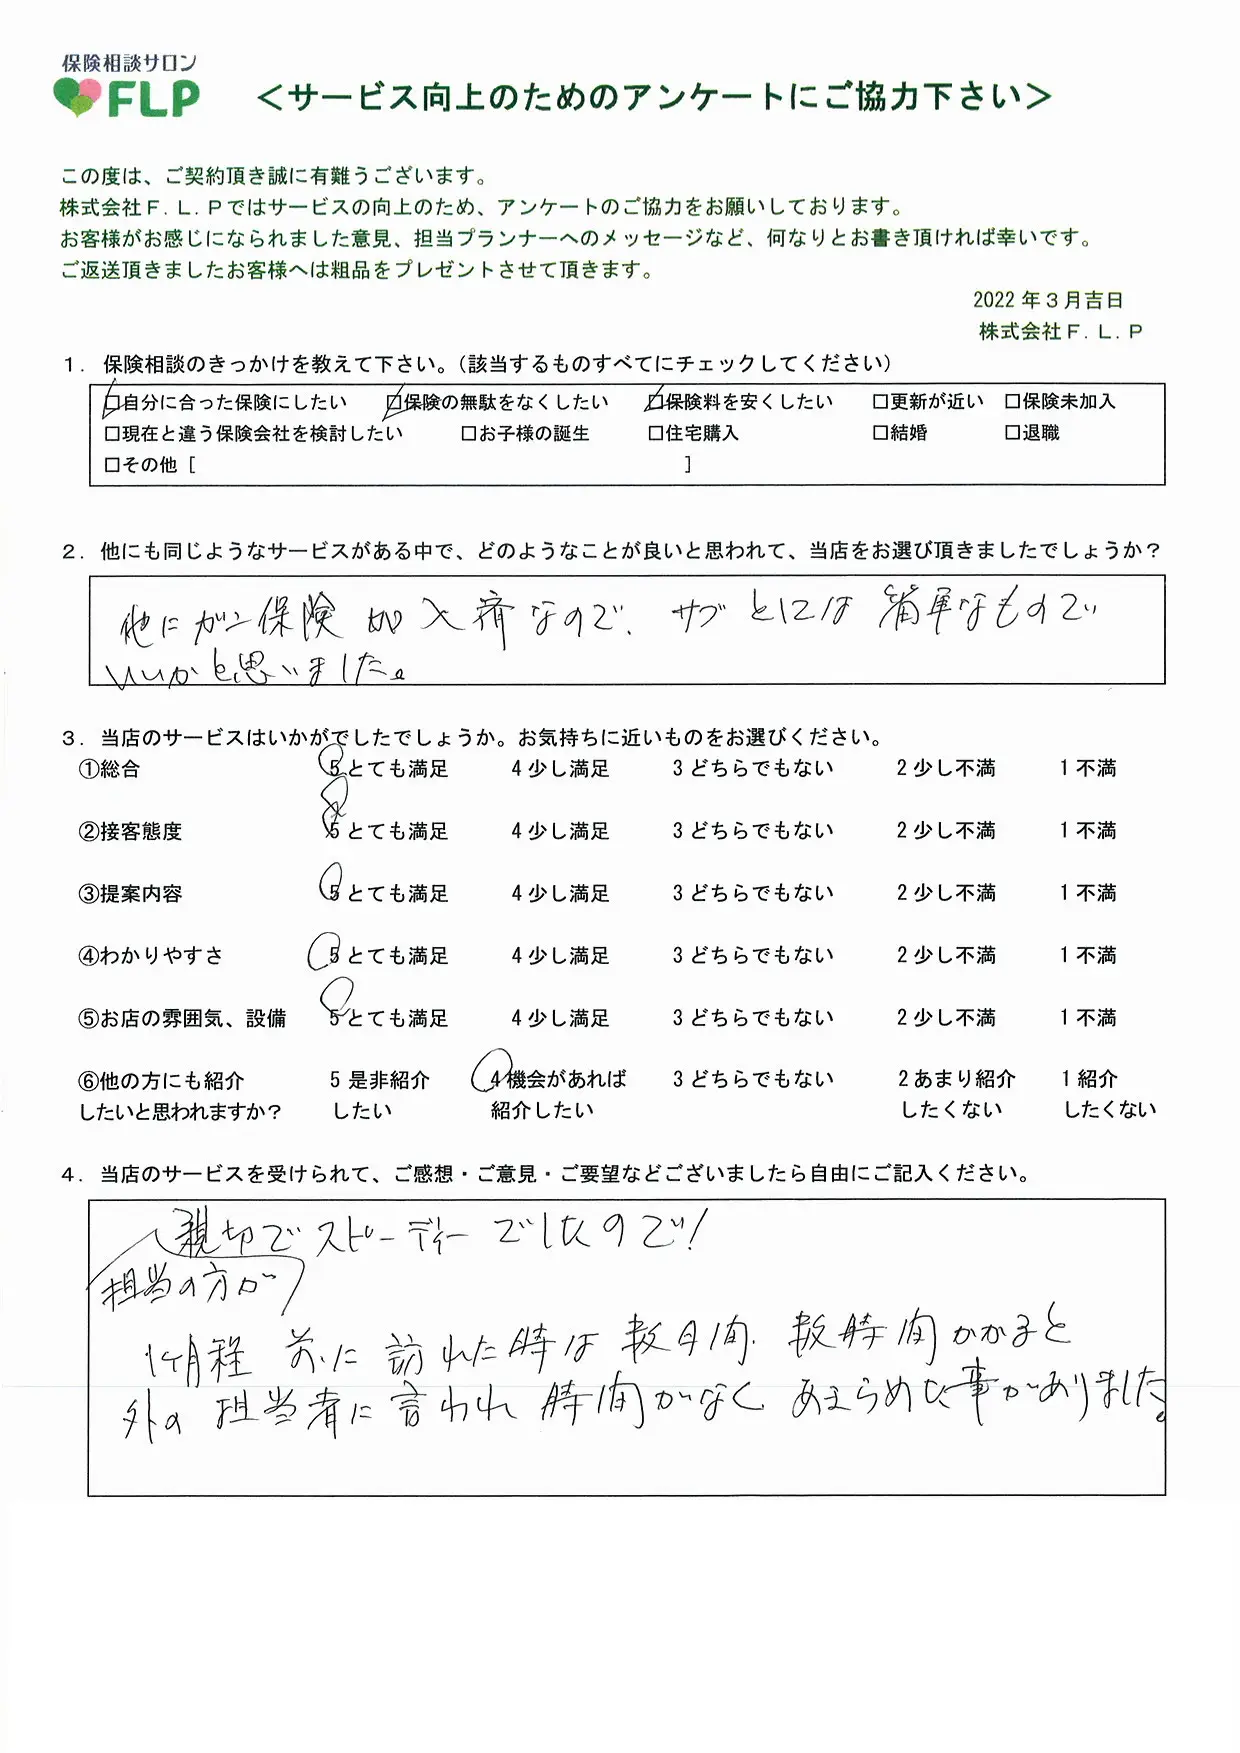 保険相談サロン
FLP
＜サービス向上のためのアンケートにご協力下さい＞
この度は、ご契約頂き誠に有難うございます。
株式会社Ｆ.Ｌ.Ｐではサービスの向上のため、アンケートのご協力をお願いしております。
お客様がお感じになられました意見、担当プランナーへのメッセージなど、何なりとお書き頂ければ幸いです。
ご返送頂きましたお客様へは粗品をプレゼントさせて頂きます。
2022 年３月吉日
株式会社Ｆ.Ｌ.Ｐ
１．保険相談のきっかけを教えて下さい。（該当するものすべてにチェックしてください）
☑自分に合った保険にしたい ☑保険の無駄をなくしたい ☑保険料を安くしたい □更新が近い □保険未加入
□現在と違う保険会社を検討したい □お子様の誕生 □住宅購入 □結婚 □退職
□その他［ ］
２．他にも同じようなサービスがある中で、どのようなことが良いと思われて、当店をお選び頂きましたでしょうか？
他にガン保険加入済なので、サブとしては簡単なもので
いいかと思いました。
３．当店のサービスはいかがでしたでしょうか。お気持ちに近いものをお選びください。
①総合 5 とても満足 4 少し満足 3 どちらでもない 2 少し不満 1 不満
②接客態度 5 とても満足 4 少し満足 3 どちらでもない 2 少し不満 1 不満
③提案内容 5 とても満足 4 少し満足 3 どちらでもない 2 少し不満 1 不満
④わかりやすさ 5 とても満足 4 少し満足 3 どちらでもない 2 少し不満 1 不満
⑤お店の雰囲気、設備 5 とても満足 4 少し満足 3 どちらでもない 2 少し不満 1 不満
⑥他の方にも紹介 5 是非紹介 4 機会があれば 3 どちらでもない 2 あまり紹介 1 紹介
したいと思われますか？ したい 紹介したい したくない したくない
４．当店のサービスを受けられて、ご感想・ご意見・ご要望などございましたら自由にご記入ください。
親切でスピーディーでしたので！
担当の方が
1ヶ月程前に訪れた時は数日間、数時間かかると
外の担当者に言われ時間がなくあきらめた事がありました。